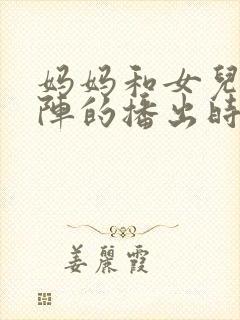 妈妈和女兒
陣的播出時
姜麗霞